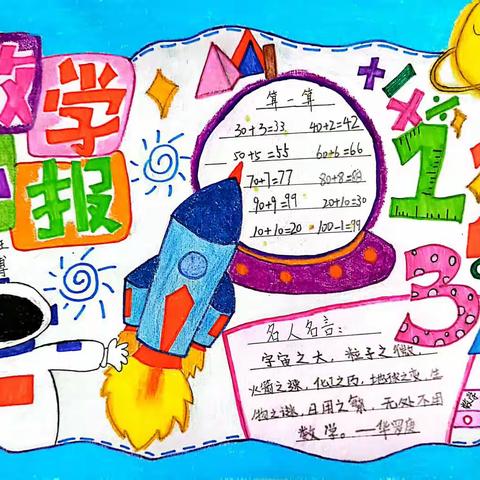 数学
报
算一算
30+3=33 40+2=42
50+5=55 60+6=66
70+7=77 80+8=88
90+9=99 20+10=30
10+10=20 100-1=99
+ × ÷
1
3
名人名言:
宇宙之大,粒子之微,
火箭之速,化工之巧,地球之变,生
物之谜,日用之繁,无处不用
数学。——华罗庚
数学